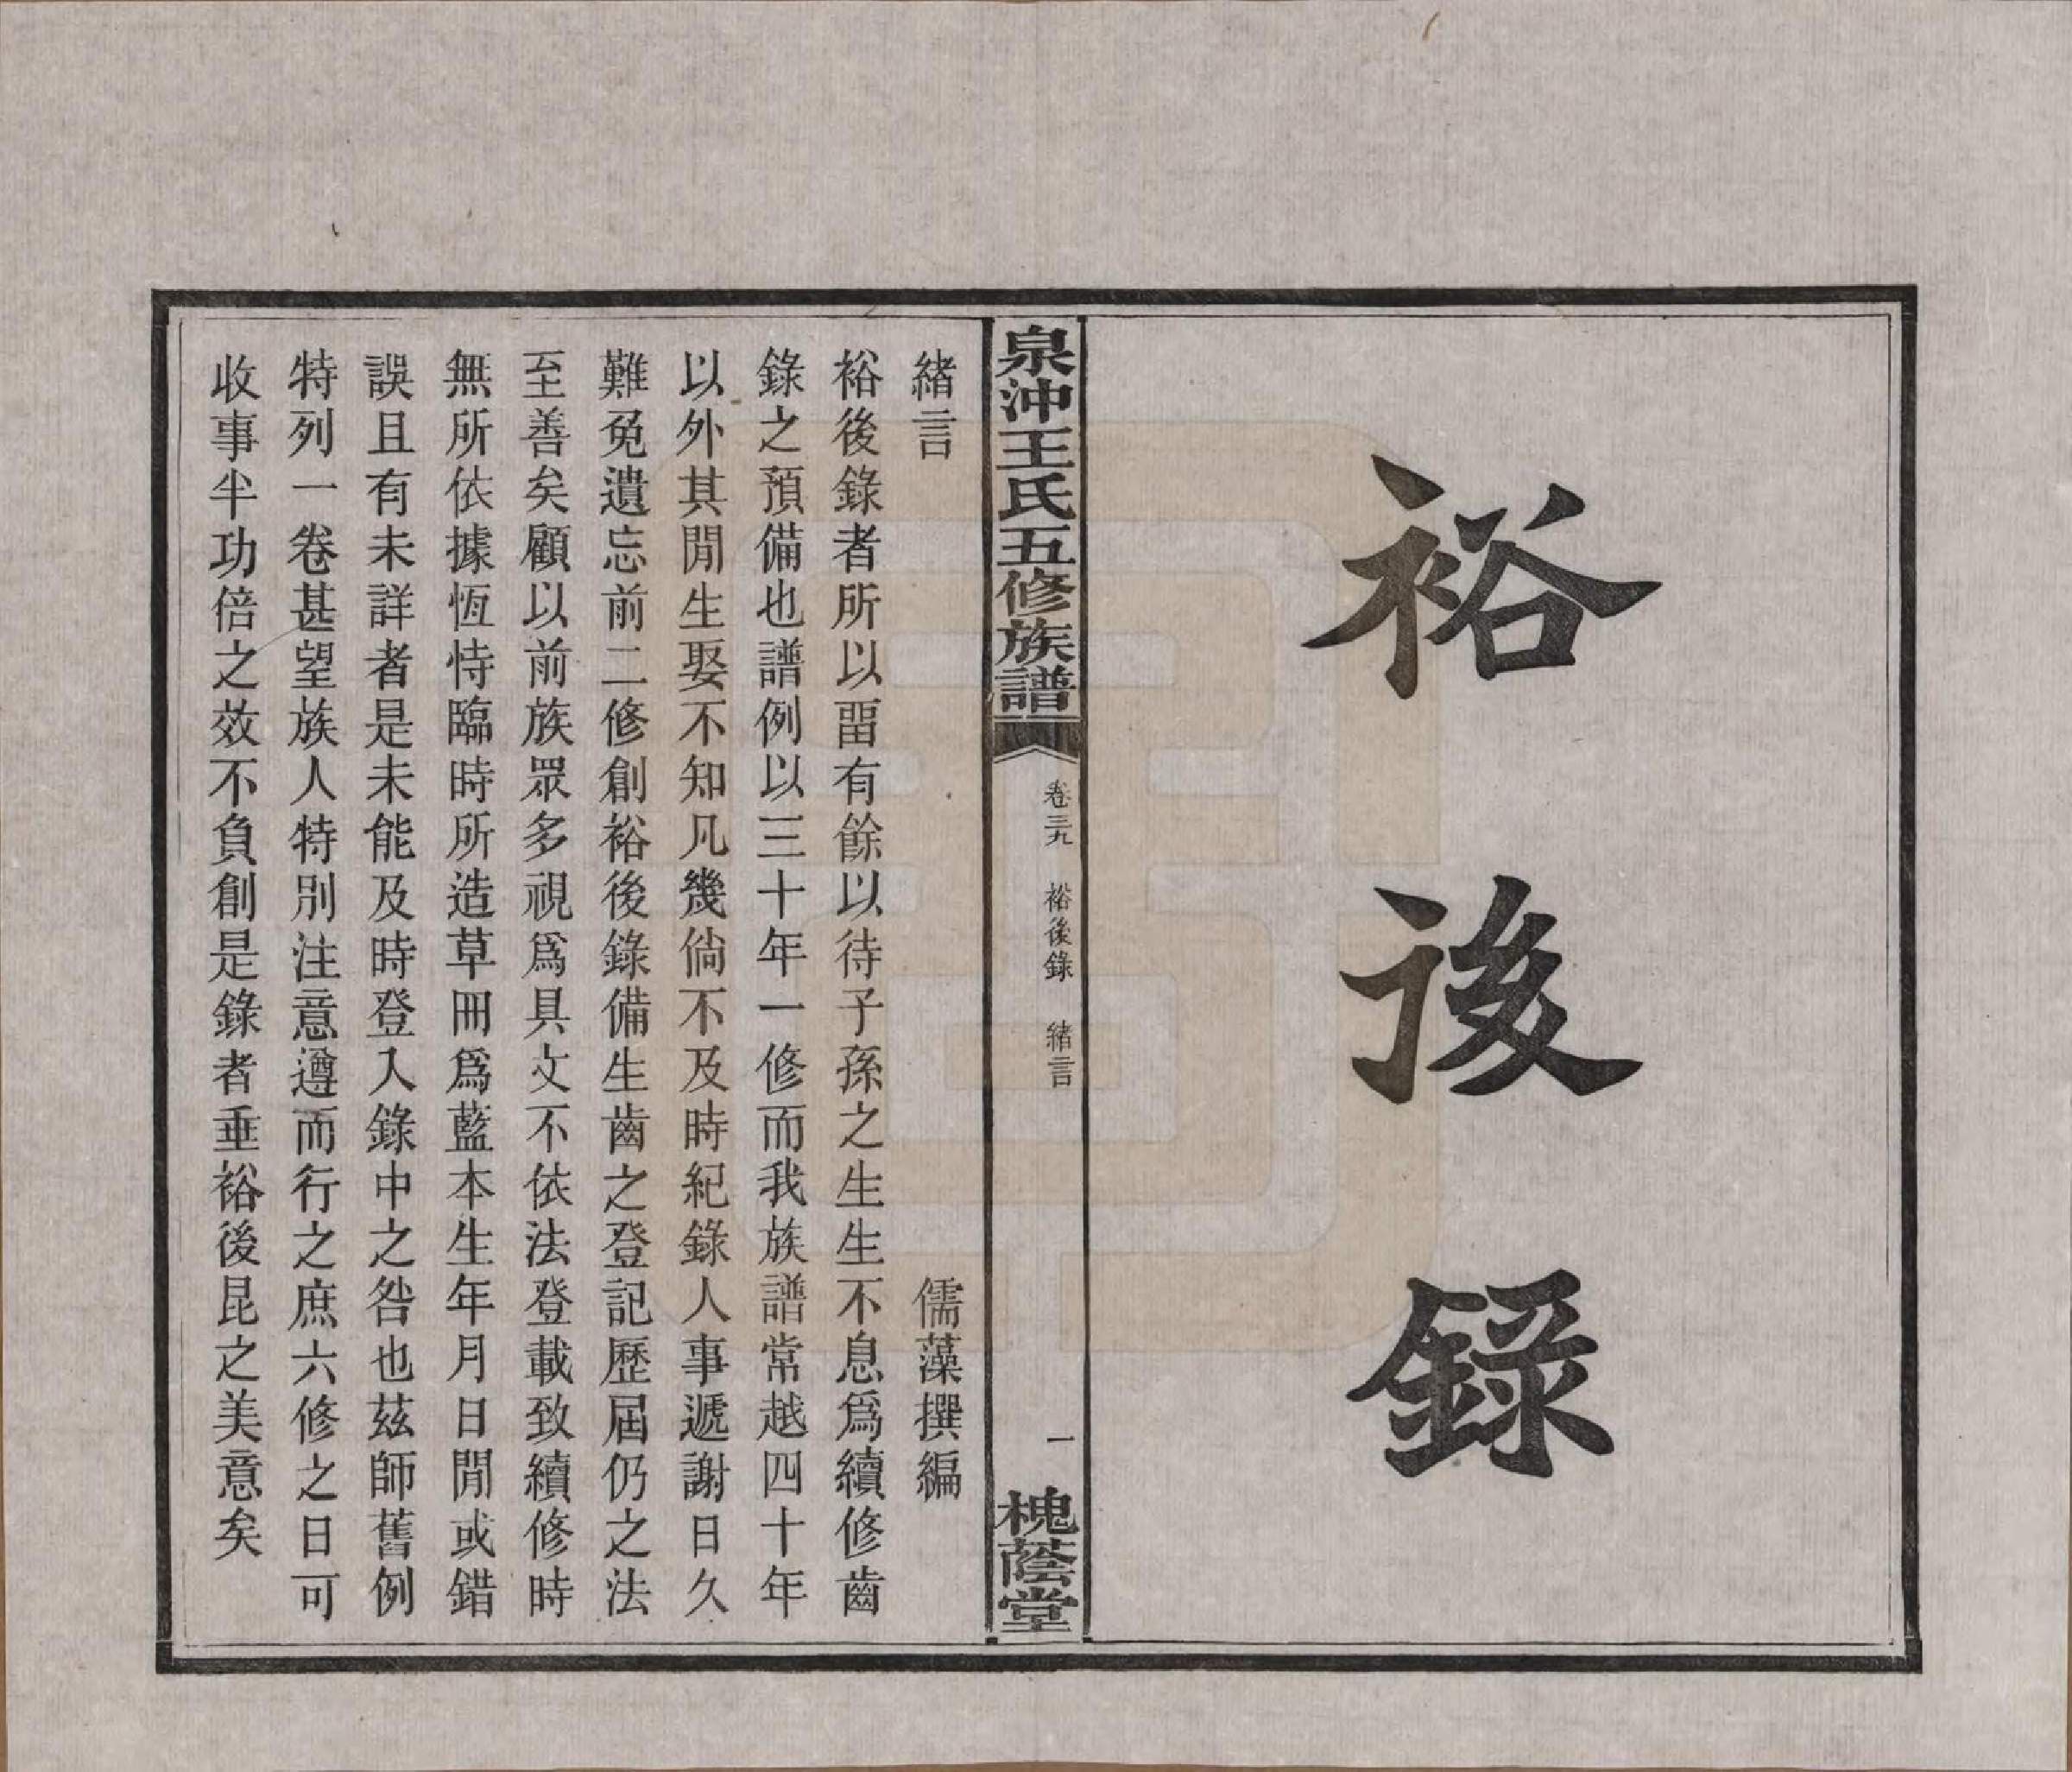 裕後錄
泉沖王氏五修族譜
卷三九 裕後錄 緒言
一
槐蔭堂
緒言 儒藻撰編
裕後錄者所以畱有餘以待子孫之生生不息爲續修齒
錄之預備也譜例以三十年一修而我族譜常越四十年
以外其閒生娶不知凡幾倘不及時紀錄人事遞謝日久
難免遺忘前二修創裕後錄備生齒之登記歷屆仍之法
至善矣顧以前族眾多視爲具文不依法登載致續修時
無所依據恆恃臨時所造草冊爲藍本生年月日閒或錯
誤且有未詳者是未能及時登入錄中之咎也茲師舊例
特列一卷甚望族人特別注意遵而行之庶六修之日可
收事半功倍之效不負創是錄者垂裕後昆之美意矣